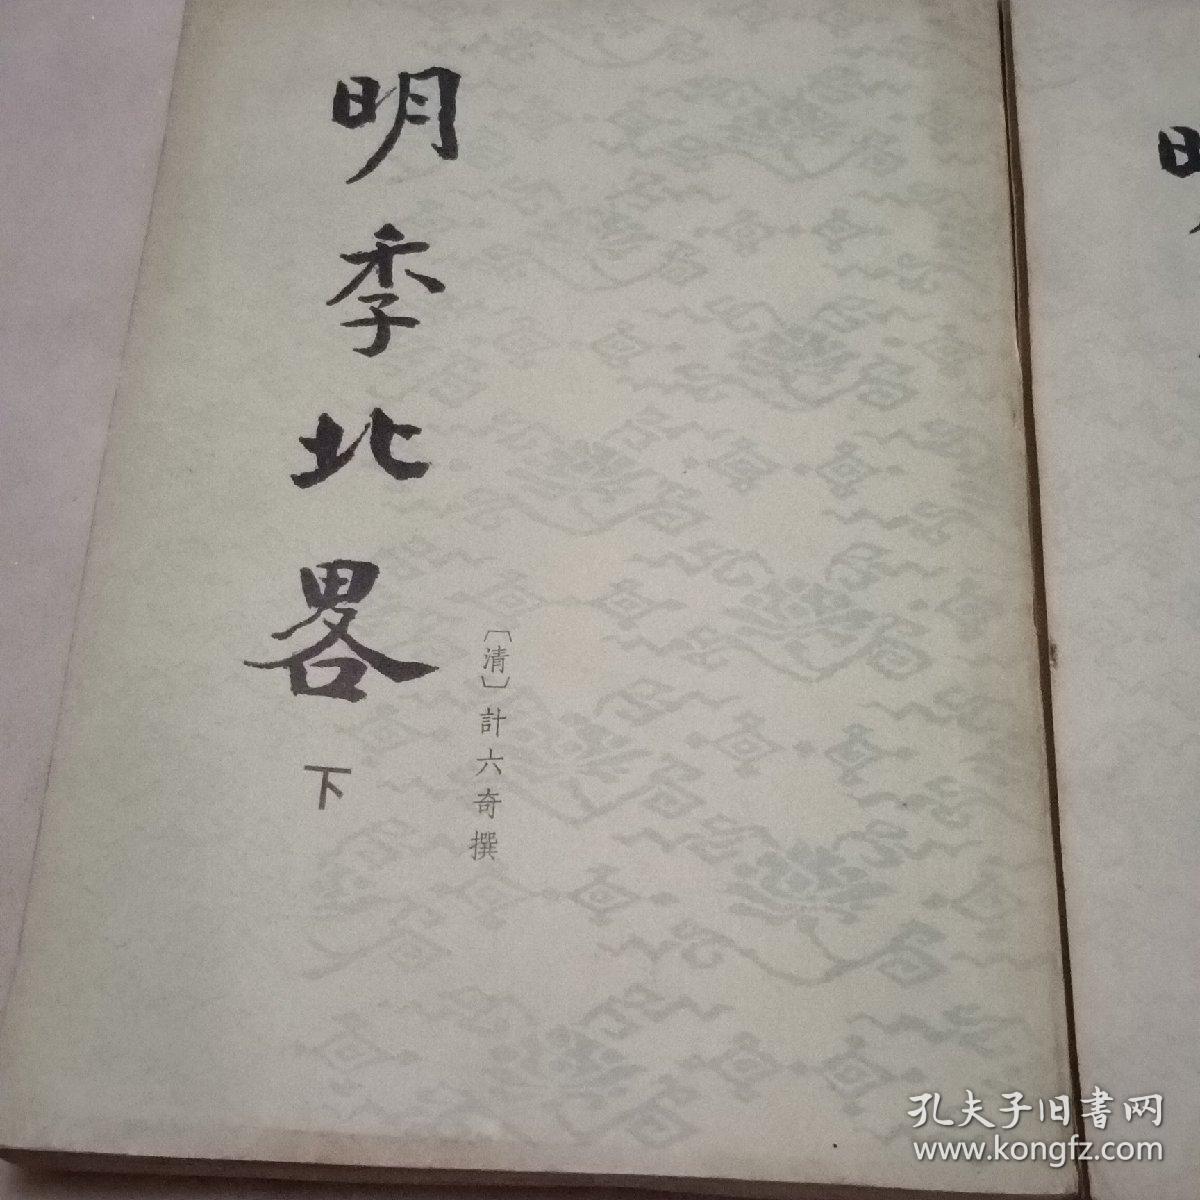 明季北畧
下
〔清〕計六奇撰
明
孔夫子旧書网
www.kongfz.com